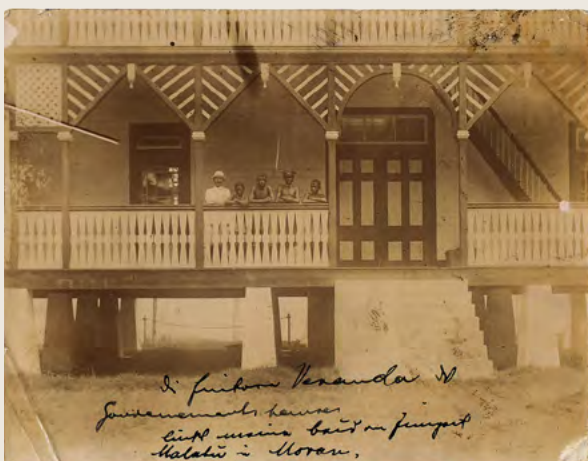 Di hintere Veranda d
Gouvernementshauses
links meine beiden Jungens
Malatu u Moran.